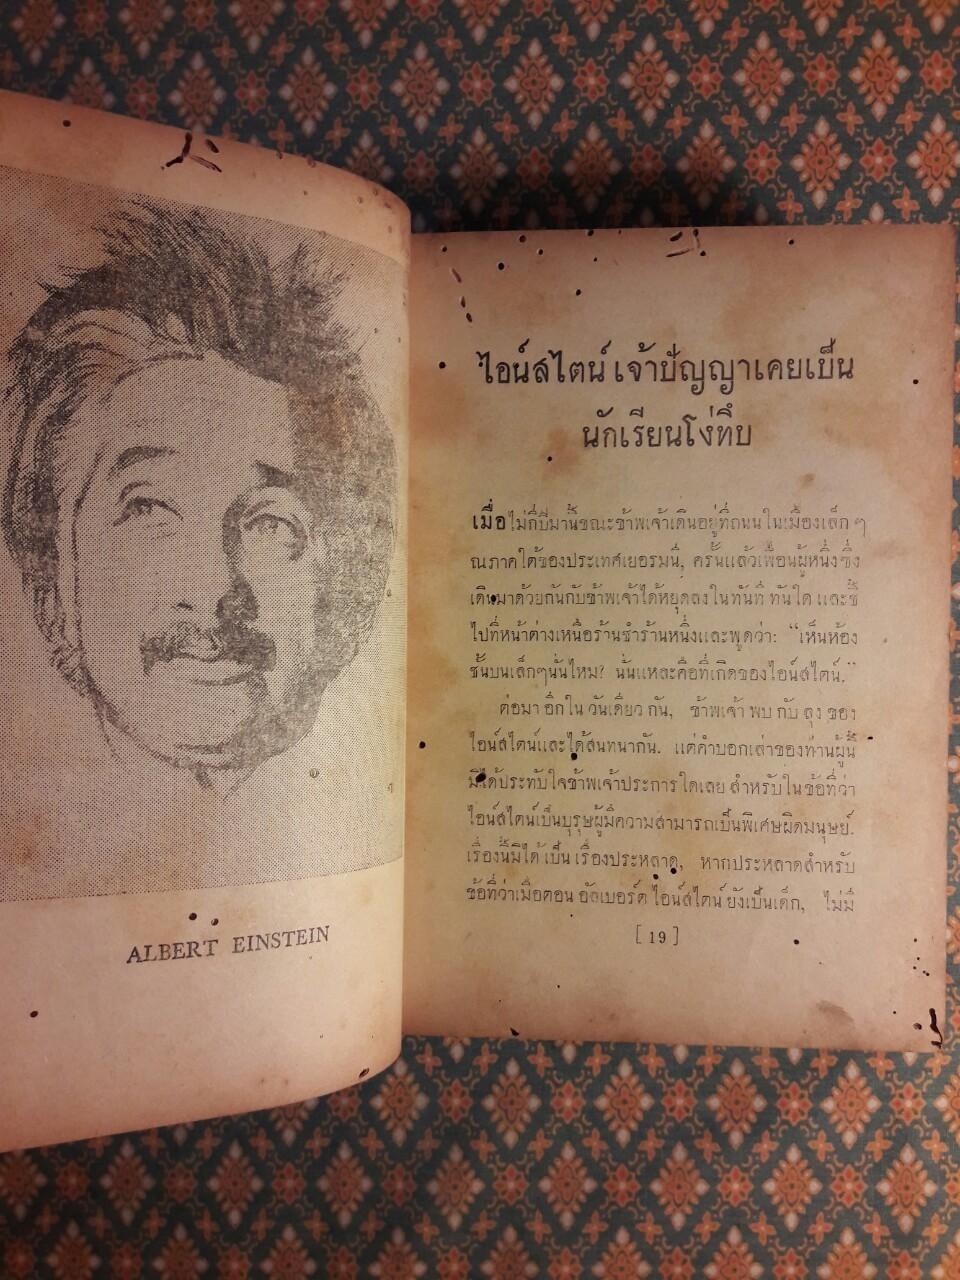 ALBERT EINSTEIN
ไอน์สไตน์ เจ้าปัญญาเคยเป็น
นักเรียนโง่ทึบ
เมื่อไม่กี่ปีมานี้ขณะข้าพเจ้าเดินอยู่ที่ถนนในเมืองเล็ก ๆ
ณภาคใต้ของประเทศเยอรมนี, ครั้นแล้วเพื่อนผู้หนึ่งซึ่ง
เดินมาด้วยกันกับข้าพเจ้าได้หยุดลงในทันที ทันใด และชี้
ไปที่หน้าต่างเหนือร้านชำร้านหนึ่งและพูดว่า: “เห็นห้อง
ชั้นบนเล็กๆนั่นไหม? นั่นแหละคือที่เกิดของไอน์สไตน์.”
ต่อมา อีกใน วันเดียว กัน, ข้าพเจ้า พบ กับ ลุง ของ
ไอน์สไตน์และได้สนทนากัน. แต่คำบอกเล่าของท่านผู้นี้
มิได้ประทับใจข้าพเจ้าประการใดเลย สำหรับในข้อที่ว่า
ไอน์สไตน์เป็นบุรุษผู้มีความสามารถเป็นพิเศษผิดมนุษย์.
เรื่องนี้มิได้ เป็น เรื่องประหลาด, หากประหลาดสำหรับ
ข้อที่ว่าเมื่อตอน อัลเบอร์ต ไอน์สไตน์ ยังเป็นเด็ก, ไม่มี
[ 19 ]